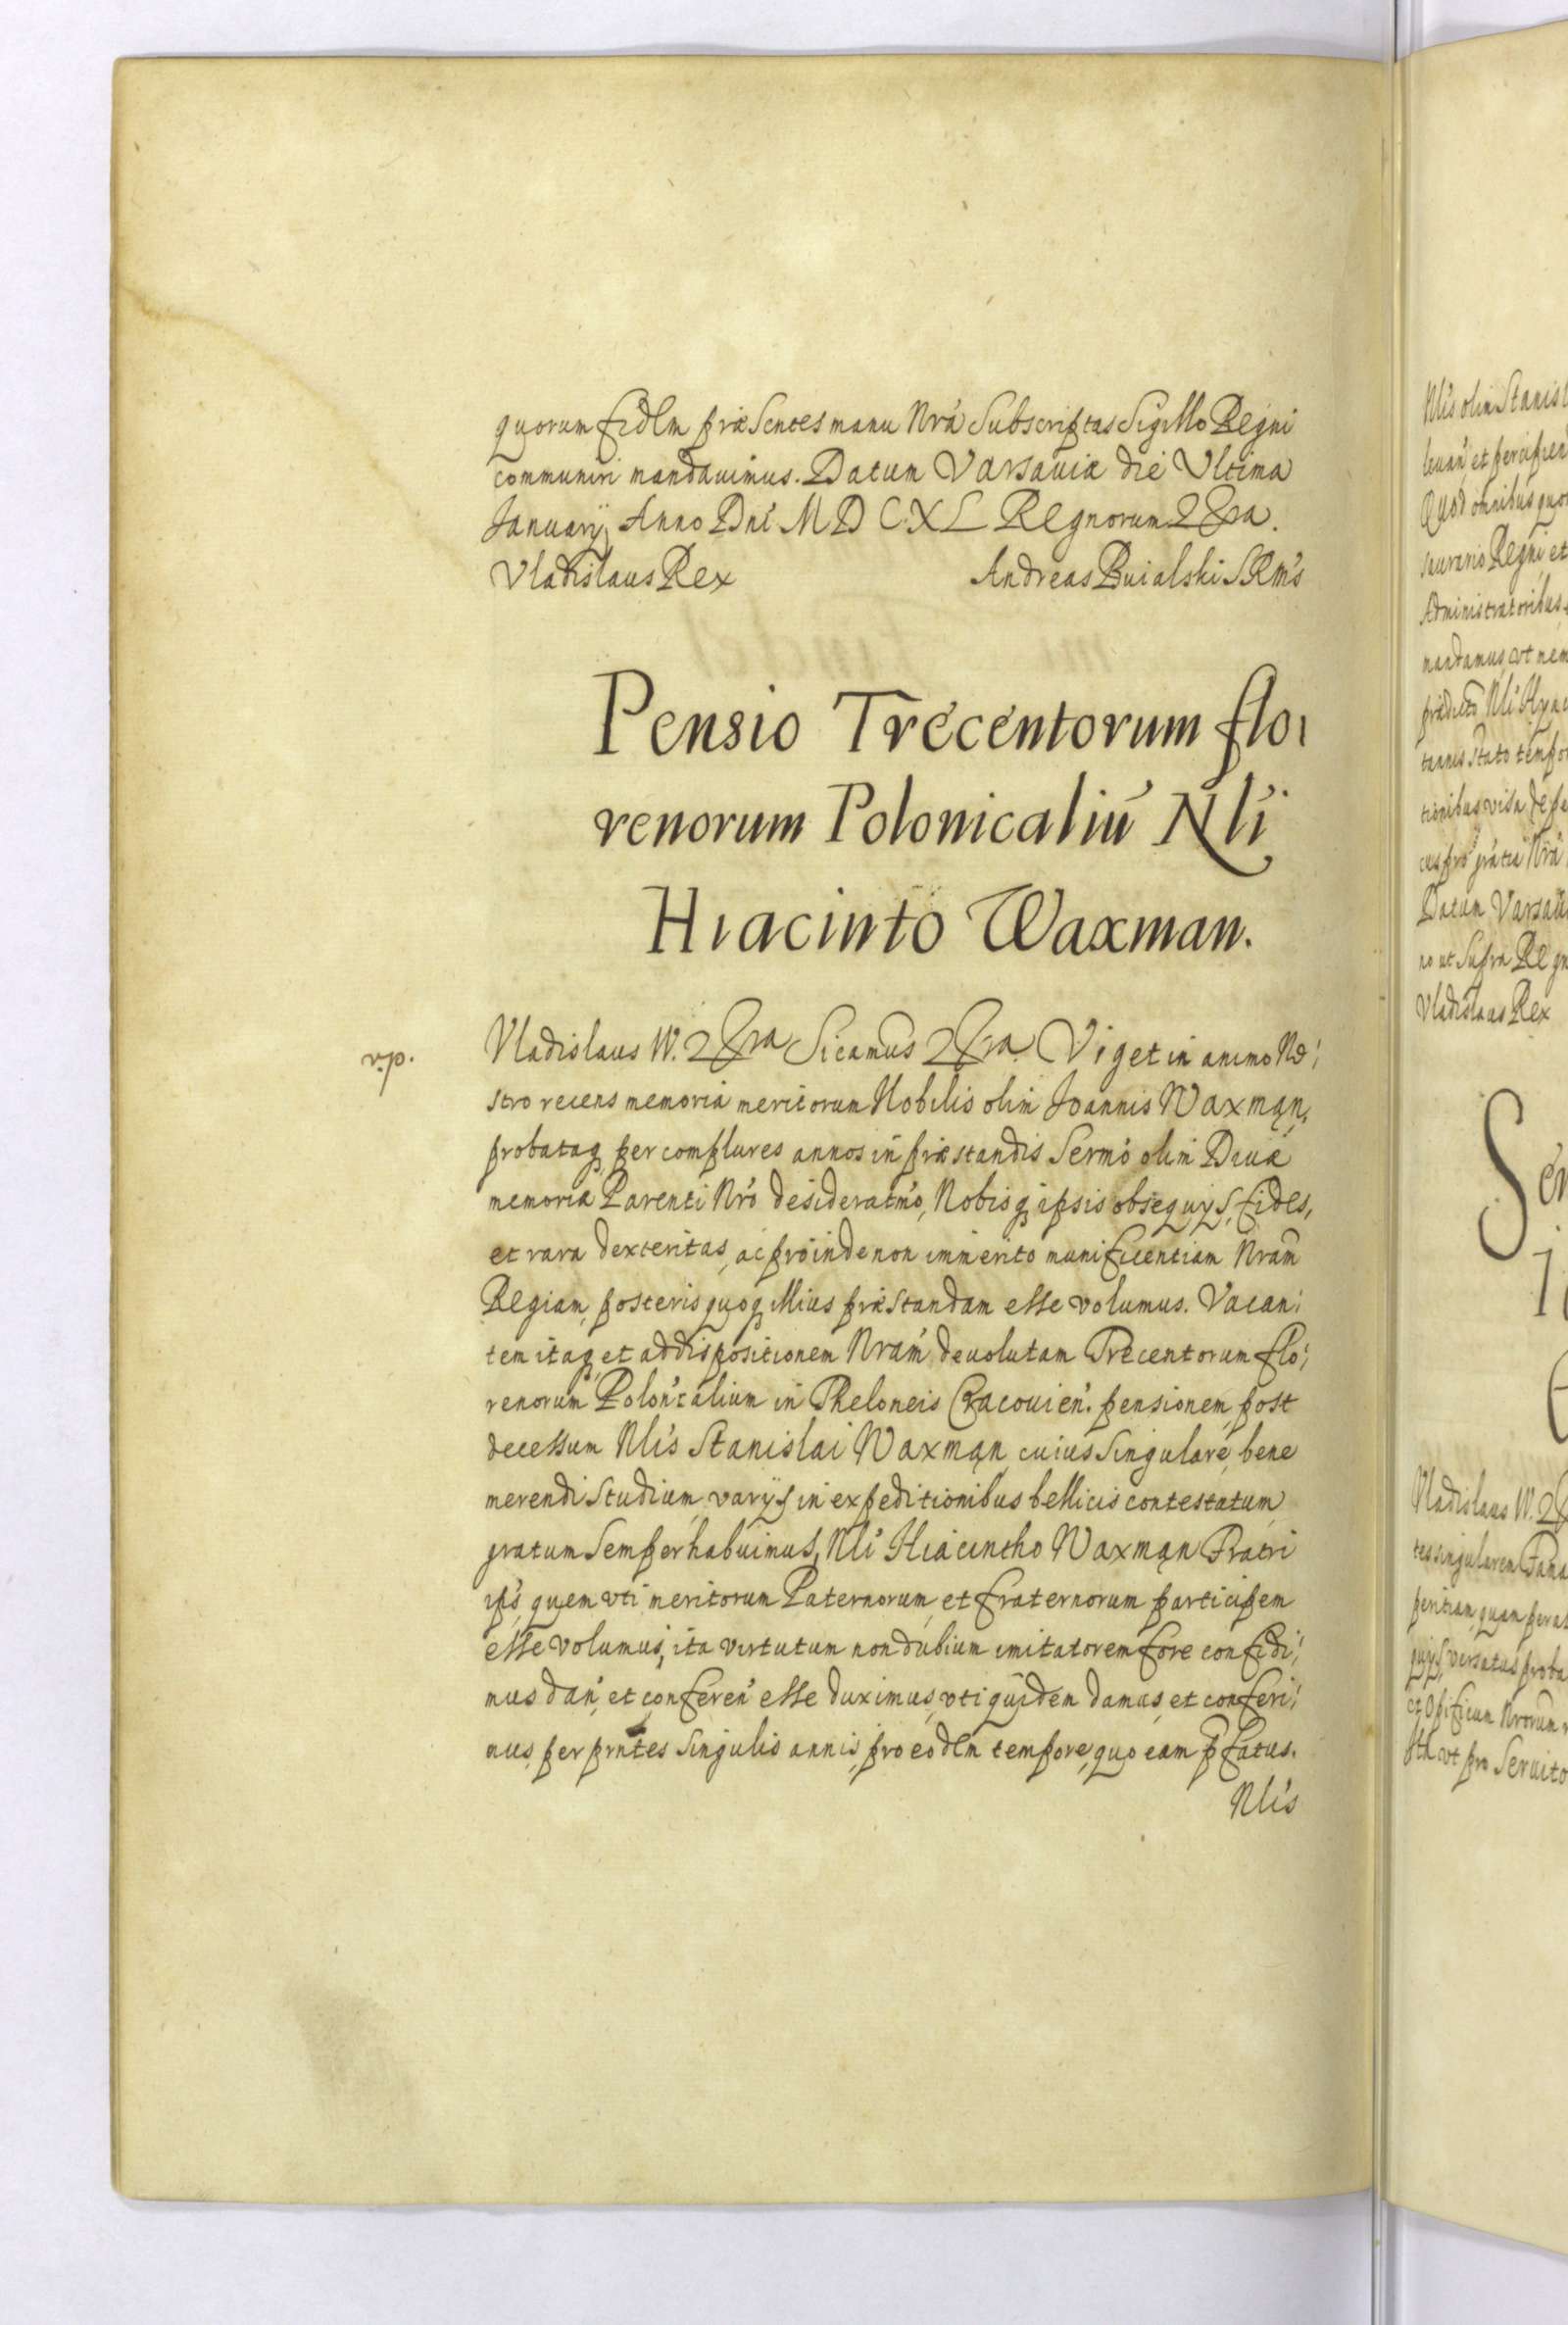 quorum fidem præsentes manu Nrá Subscriptas Sigillo Regni
communiri mandauimus. Datum Varsauiæ die Ultima
Januarij Anno Dni M D C X L Regnorum
Vladislaus Rex Andreas Buialski SRMs
Pensio Trecentorum flo
renorum Polonicaliu Nli
Hiacinto Waxman.
Vladislaus IV. Sicamus Viget in animo No
stro recens memoria meritorum Nobilis olim Joannis Waxman,
probataq per complures annos in præstandis Sermo olim Diuæ
memoriæ Parenti Nro desideratmo, Nobisq ipsis obsequys, fides,
et rara dexteritas, ac proinde non immerito munificentiam Nram
Regiam, posteris quoq illius præstandam esse volumus. Vacan
tem itaq, et ad dispositionem Nram deuolutam Trecentorum flo
renorum Polon'calium in Theloneis Cracouien. pensionem, post
decessum Nlis Stanislai Waxman, cuius Singulare, bene
merendi studium, varijs in expeditionibus bellicis contestatum
gratum Semper habuimus, Nli Hiacintho Waxman Fratri
ips, quem vti meritorum Paternorum, et fraternorum participem
esse volumus, ita virtutum non dubium imitatorem fore confidi
mus dan, et conferen esse duximus, vti quidem damus, et conferi
mus, per prntes Singulis annis, pro eodem tempore, quo eam pfatus.
Nlis
Nlis olim Stanis
leuan, et percipien
Quod omnibus quo
sauvario Regni, et
Administratoribus,
mandamus, vt nem
prædicto Nli Hyac
tannis Stato tempo
tionibus visa depe
cus pro gratia Nra
Datum Varsau
no ut Supra Regn
Vladislaus Rex
Ser
Vladislaus IV.
tes singularem Fama
peritiam, quam per
quys, versatus proba
et Opificum Nrorum
vt pro Seruito